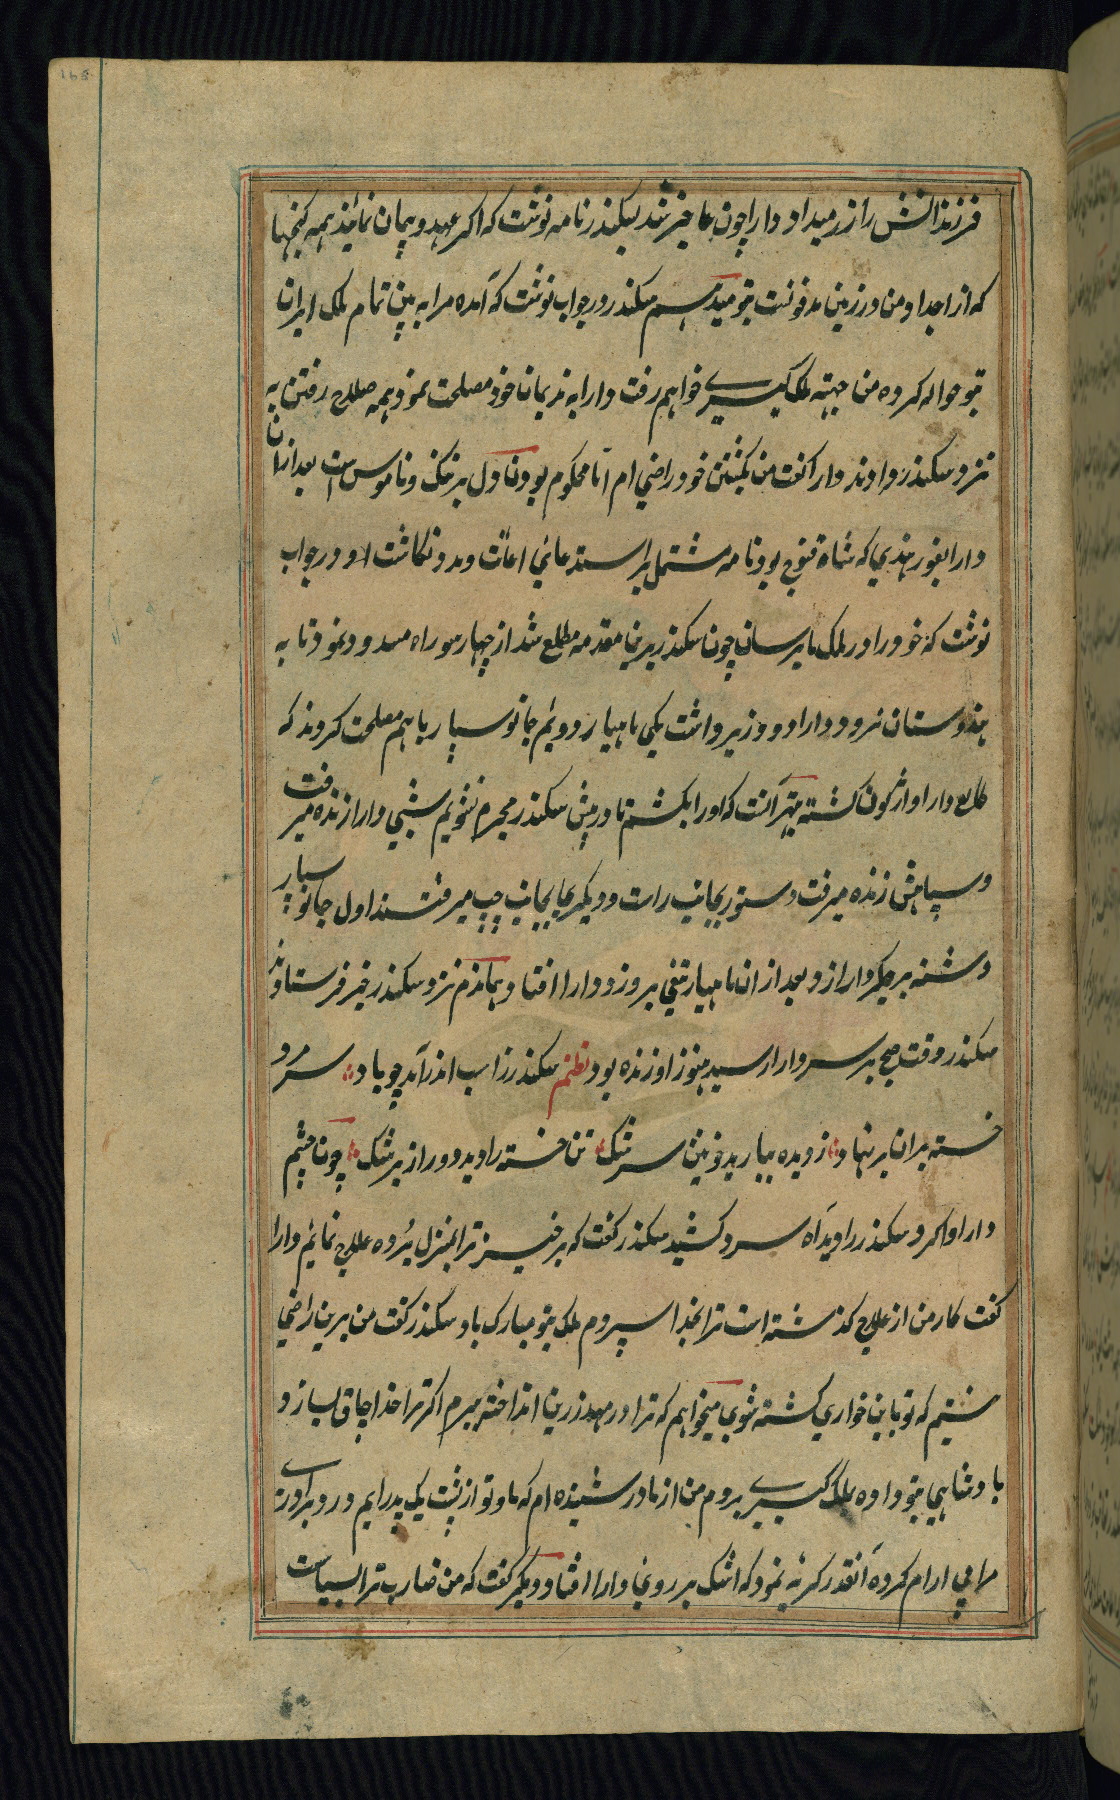 فرزندانش را زر میداد و دارا چون عاجز شد بسکندر نامه نوشت که اگر عهد و پیمان نمائید همه گنجها
که از اجداد من در زمین مدفونست بتو میدهم سکندر در جواب نوشت که آمده مرا به بین تمام ملک ایران
بتو حواله کرده من جهته ملک گیری خواهم رفت دارا به ندیمان خود مصلحت نمود همه صلاح رفتن به
نزد سکندر دادند دارا گفت من بکشتن خود راضی ام اما محکوم بودن اول بر ننگ و ناموس است بعد ازان
دارا بفور هندی که شاه قنوج بود نامه مشتمل بر استدعائی اعانت و مدد نگاشت او در جواب
نوشت که خود را در ملک ما برسان چون سکندر برین مقدمه مطلع شد از چهار سو راه مسدود نمود تا به
هندوستان نرود و دارا دو وزیر داشت یکی ماهیار دوئم جانوسپار باهم مصلحت کردند که
طالع دارا واژگون گشته بهتر آنست که اورا بکشیم تا در پیش سکندر مجرم نشویم شبی دارا زنده میرفت
و سپاهش زنده میرفت دستور بجانب راست و دیگری بجانب چپ میرفتند اول جانوسپار
دشنه بر جگر دارا زد بعد از ان ماهیار تیغی بر و زد دارا افتاد بهماندم نزد سکندر خبر فرستادند
سکندر وقت صبح بر سر دارا رسید هنوز او زنده بود نظم سکندر ز اسب اندر آمد چو باد سر مرد
خسته بران بر نهاد ز دیده ببارید خونین سرشک تن خسته را دید دور از پزشک چون چشم
دارا وا کرد سکندر را دید آه سرد کشید سکندر گفت که برخیز ترا بمنزل برده علاج نمایم دارا
گفت کار من از علاج گذشته است ترا بخدا سپردم ملک بتو مبارک باد سکندر گفت من برین راضی
نیستم که تو باین خواری کشته شوی میخواهم که ترا در مهد زرین انداخته ببرم اگر ترا خدا چاق بسازد
بادشاهی بتو داده بملک گیری بروم من از مادر شنیده ام که ما و تو از پشت یک پدر ایم درد برادری
مرا بی آرام کرده آنقدر گریه نمود که اشک بر روی دارا افتاد و دیگر گفت که من ضارب ترا بسیاست